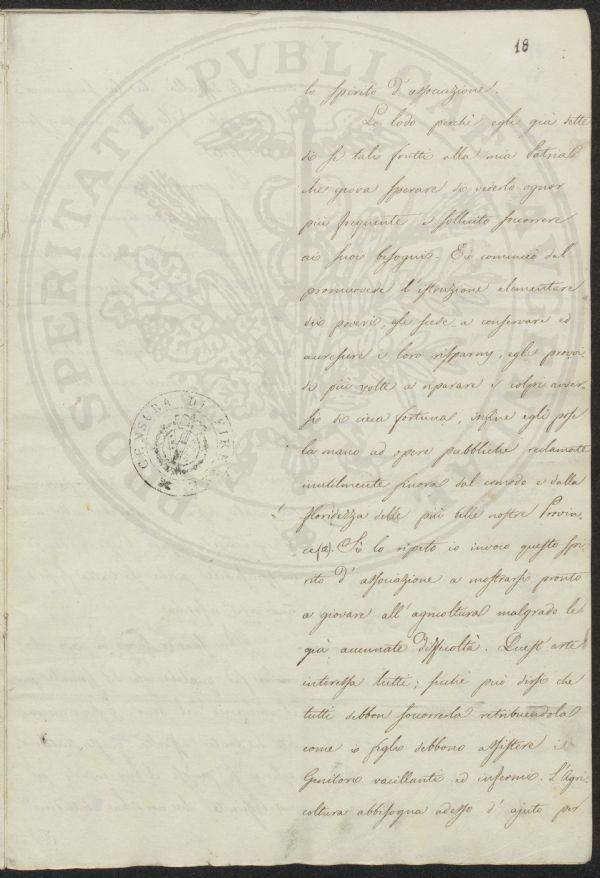 18
lo spirito d'associazione.
Lo lodo perchè egli già dette
di sì tali frutti alla mia Patria
che giova sperare di vederlo ognor
più frequente e sollecito soccorrere
ai suoi bisogni. Ei cominciò dal
promuovere l'istruzione elementare
dei poveri, gli scese a conservare ed
accrescere i loro risparmj, egli provvi-
di più volte a riparare i colpi avver-
si di cieca fortuna, infine egli pose
la mano ad opere pubbliche reclamate
inutilmente finora dal comodo e dalla
floridezza delle più belle nostre Provin-
ce(a). Sì lo ripeto io invoco questo spi-
rito d'associazione a mostrarsi pronto
a giovare all'agricoltura malgrado le
già accennate difficoltà. Quest'arte
interessa tutti; sicchè può dirsi che
tutti debbon soccorrerla retribuendola
come i figli debbono assistere i
Genitori vacillanti ed infermi. L'Agri-
coltura abbisogna adesso d'ajuto per
CENSURA DI FIRENZE
PROSPERITATI PVBLICAE